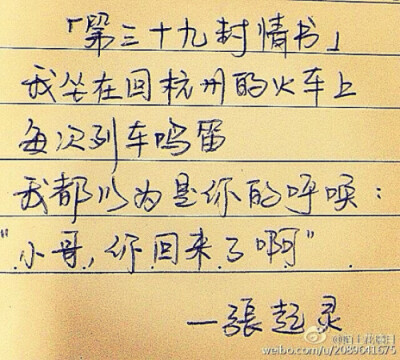 「第三十九封情书」
我坐在回杭州的火车上
每次列车鸣笛
我都以为是你的呼唤：
“小哥，你回来了啊”
—張起灵
weibo.com/u/2089641675